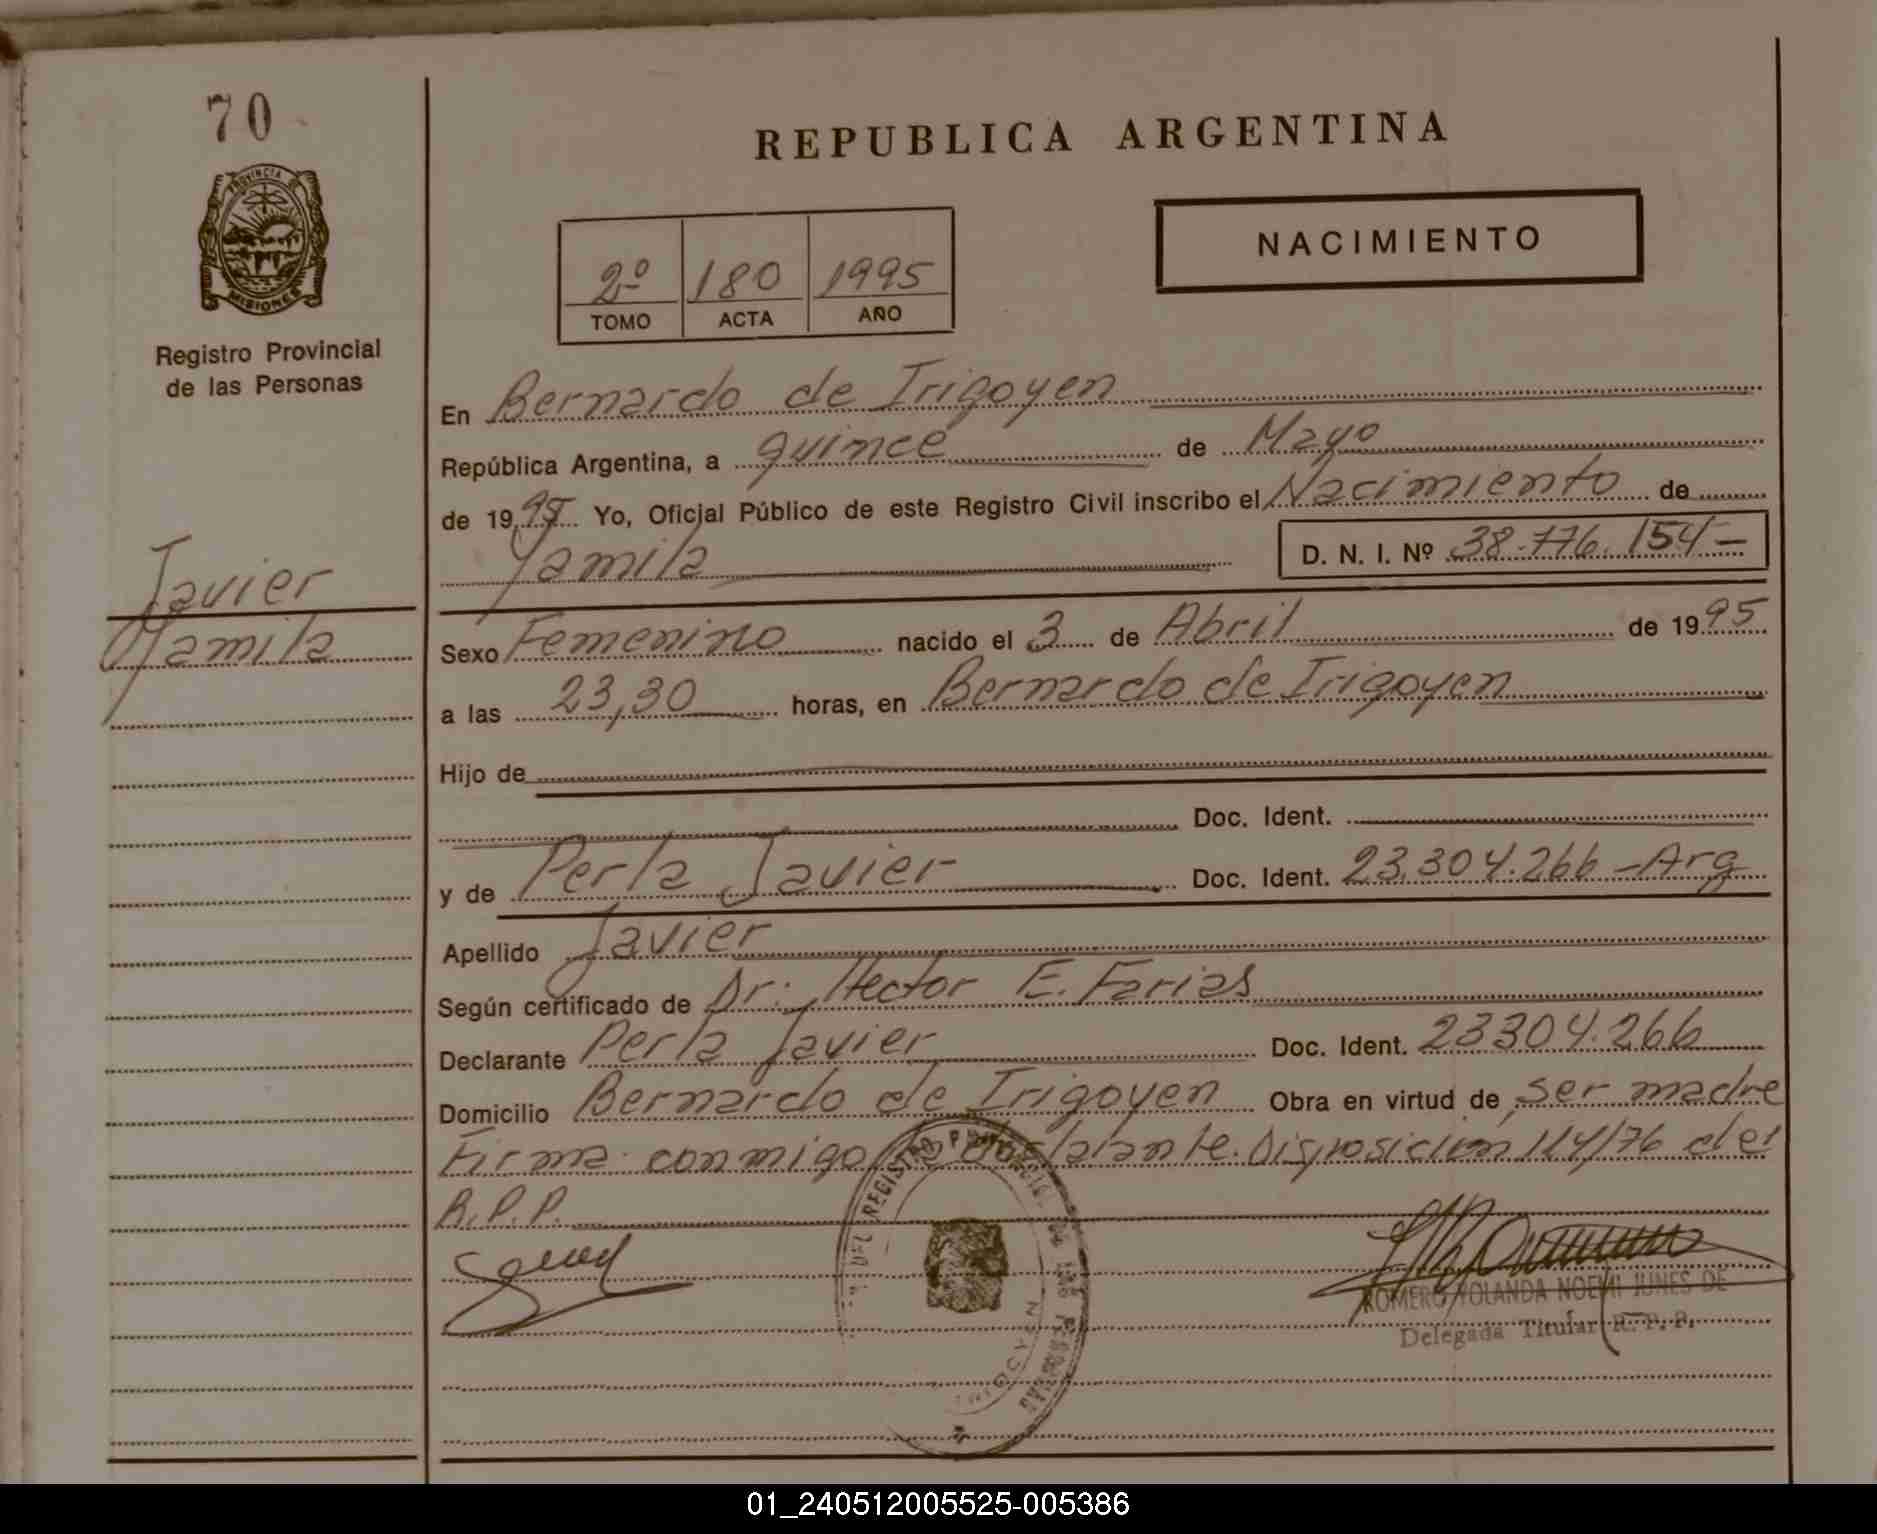 70
PROVINCIA DE
MISIONES
Registro Provincial
de las Personas
Javier
Yamila
REPUBLICA ARGENTINA
NACIMIENTO
2º 180 1995
TOMO ACTA AÑO
En Bernardo de Irigoyen
República Argentina, a quince de Mayo
de 1995 Yo, Oficial Público de este Registro Civil inscribo el Nacimiento de
Yamila D. N. I. Nº 38.776.154-
Sexo Femenino nacido el 3 de Abril de 1995
a las 23,30 horas, en Bernardo de Irigoyen
Hijo de
Doc. Ident.
y de Perla Javier Doc. Ident. 23.304.266-Arg
Apellido Javier
Según certificado de Dr. Hector E. Farias
Declarante Perla Javier Doc. Ident. 23304.266
Domicilio Bernardo de Irigoyen Obra en virtud de ser madre
Firma conmigo la declarante. Disposicion 114/76 del
R.P.P.
DEL REGISTRO PROVINCIAL DE LAS PERSONAS
ROMERO YOLANDA NOEMI JUNES DE
Delegada Titular R. P. P.
01_240512005525-005386